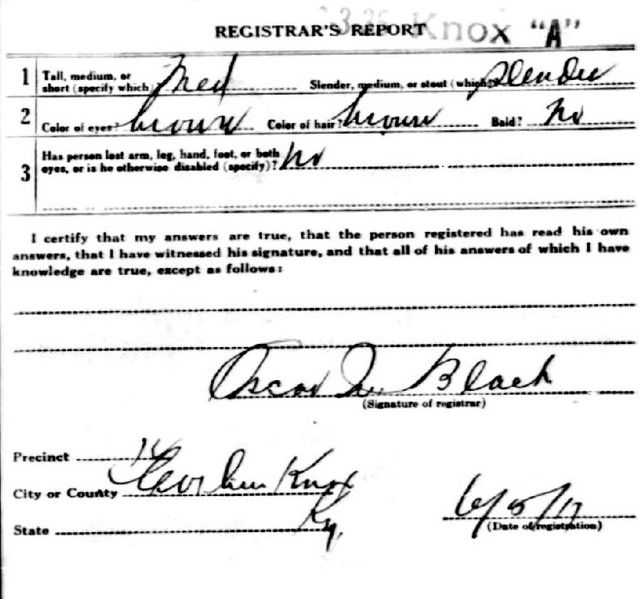 REGISTRAR'S REPORT Knox "A"
1 Tall, medium, or short (specify which) Med Slender, medium, or stout (which?) Slender
2 Color of eyes brown Color of hair? brown Bald? No
3 Has person lost arm, leg, hand, foot, or both
eyes, or is he otherwise disabled (specify)? No
I certify that my answers are true, that the person registered has read his own
answers, that I have witnessed his signature, and that all of his answers of which I have
knowledge are true, except as follows:
Oscar Black
(Signature of registrar)
Precinct 14
City or County Corbin Knox
State Ky.
6/5/17
(Date of registration)